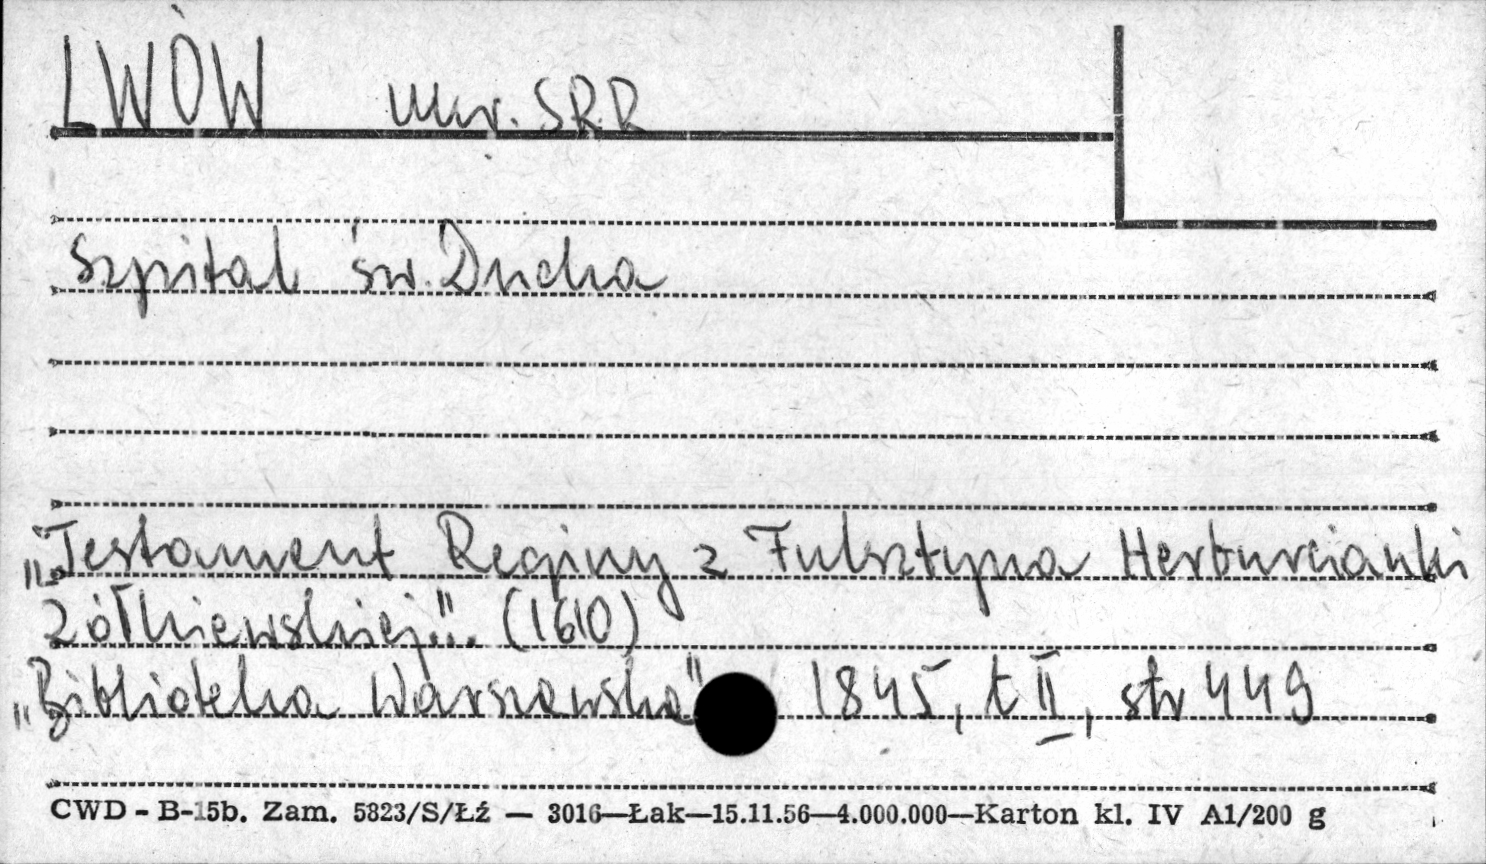 LWÓW Ukr. SRR
Szpital św. Ducha
„Testament Reginy z Fulsztyna Herburcianki
Żółkiewskiej"... (1610)
„Biblioteka Warszawska" 1845, t II, str 449
CWD - B-15b. Zam. 5823/S/Łź — 3016—Łak—15.11.56—4.000.000—Karton kl. IV A1/200 g